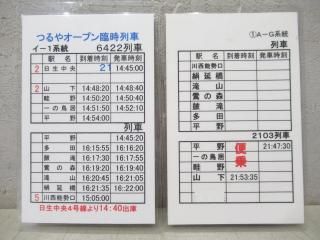 つるやオープン臨時列車
イー1系統 6422列車
駅名 到着時刻 発車時刻
2 日生中央 21 14:45:00
2 山下 14:48:20 14:48:40
畦野 14:50:20 14:50:40
一の鳥居 14:51:50 14:52:10
平野 14:54:50
列車
平野 14:45:20
多田 16:15:55 16:15:55
鼓滝 16:17:30 16:17:55
鶯の森 16:19:20 16:19:40
滝山 16:20:45 16:21:05
絹延橋 16:21:35 16:22:00
5 川西能勢口 15:05:00
日生中央4号線より14:40出庫
①A－G系統
列車
駅名 到着時刻 発車時刻
川西能勢口
絹延橋
滝山
鶯の森
鼓滝
多田
平野
2103列車
平野 便乗 21:47:30
一の鳥居
畦野
山下 21:53:35